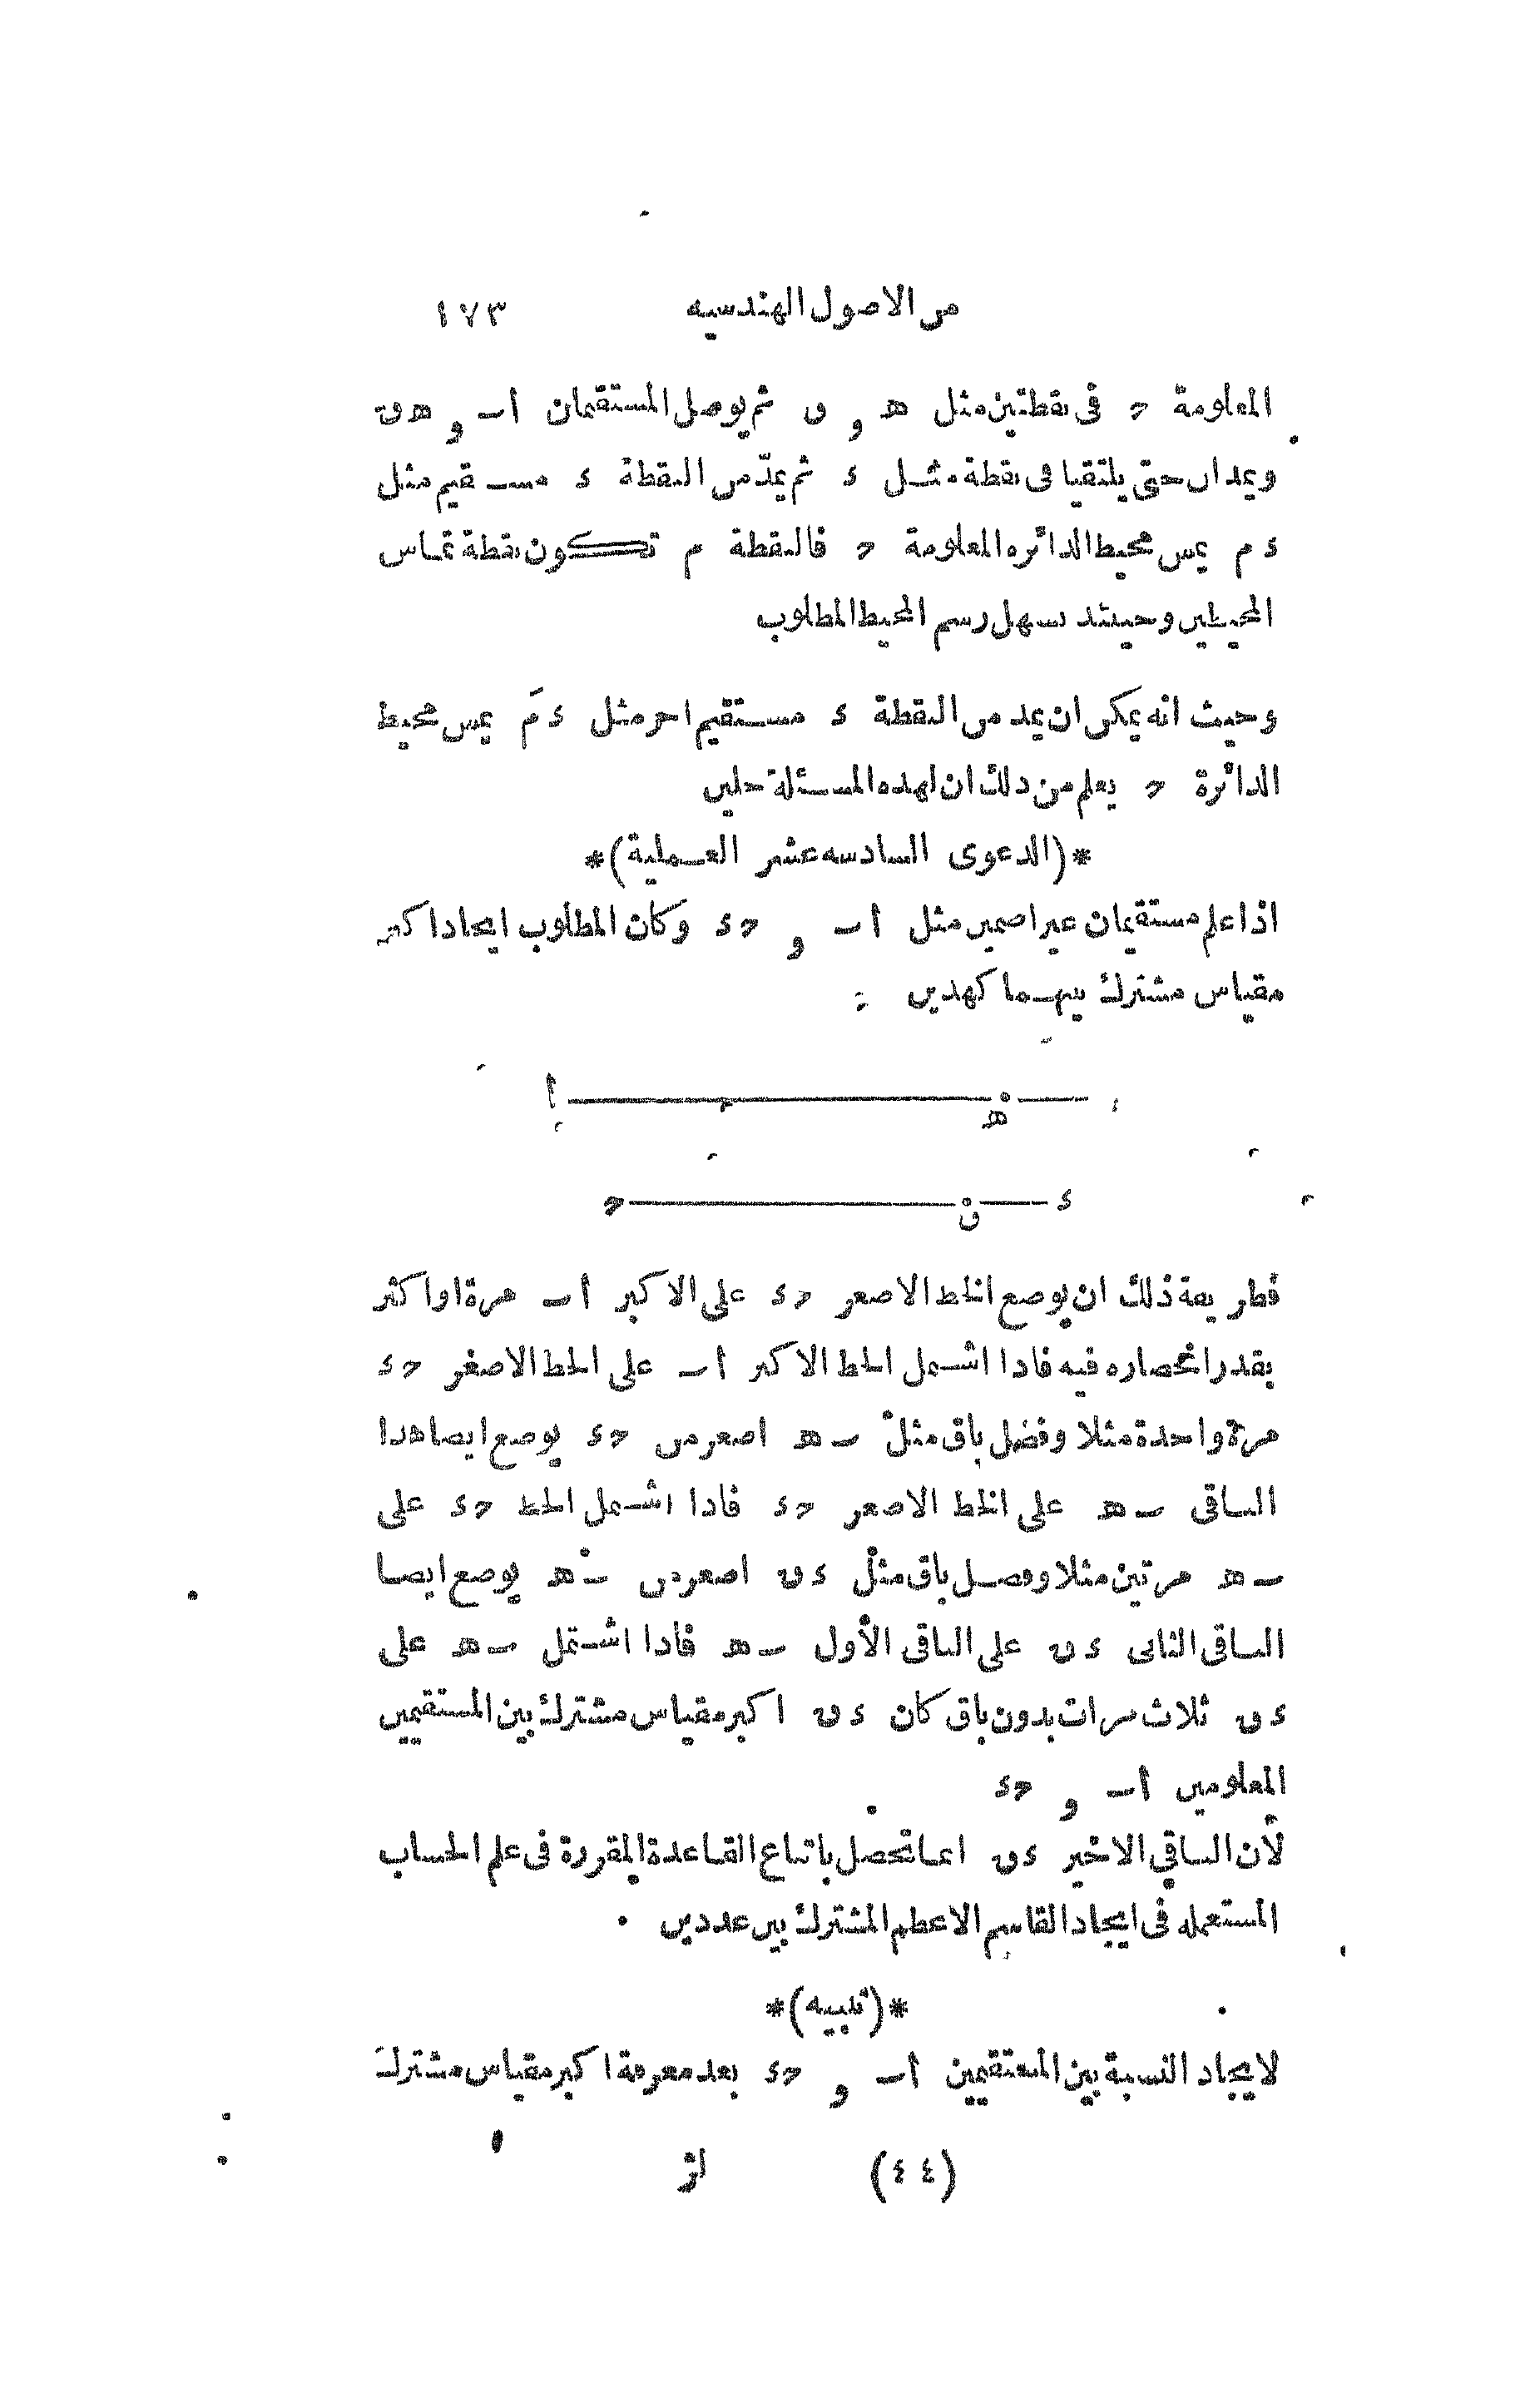 من الاصول الهندسيه ١٧٣
المعلومة ح فى نقطتين مثل ه و ں ثم يوصل المستقيمان اٮ و هں
ويمدان حتى يلتقيا فى نقطة مثل ء ثم يمدّ من النقطة ء مستقيم مثل
ء م يمس محيط الدائره المعلومة ح فالنقطة م تكون نقطة تماس
المحيطين وحينئذ سهل رسم المحيط المطلوب
وحيث انه يمكن ان يمد من النقطة ء مستقيم اخر مثل ء مَ يمس محيط
الدائرة ح يعلم من ذلك ان لهذه المسئلة حلين
*(الدعوى السادسه عشر العملية)*
اذا علم مستقيمان غير اصمين مثل اٮ و حء وكان المطلوب ايجاد اكبر
مقياس مشترك بينهما كهذين
ا ه
ح ں ء
فطريقة ذلك ان يوضع الخط الاصغر حء على الاكبر اٮ مرة اواكثر
بقدر انحصاره فيه فاذا اشتمل الخط الاكبر اٮ على الخط الاصغر حء
مرة واحدة مثلا وفضل باق مثل ٮه اصغر من حء يوضع ايضا هذا
الباقى ٮه على الخط الاصغر حء فاذا اشتمل الخط حء على
ٮه مرتين مثلا وفضل باق مثل ءں اصغر من ٮه يوضع ايضا
الباقى الثانى ءں على الباقى الأول ٮه فاذا اشتمل ٮه على
ءں ثلاث مرات بدون باق كان ءں اكبر مقياس مشترك بين المستقيمين
المعلومين اٮ و حء
لأن الباقي الاخير ءں انما تحصل باتباع القاعدة المقررة فى علم الحساب
المستعمله فى ايجاد القاسم الاعظم المشترك بين عددين
*(تنبيه)*
لايجاد النسبة بين المستقيمين اٮ و حء بعد معرفة اكبر مقياس مشترك
(٤٤) لژ